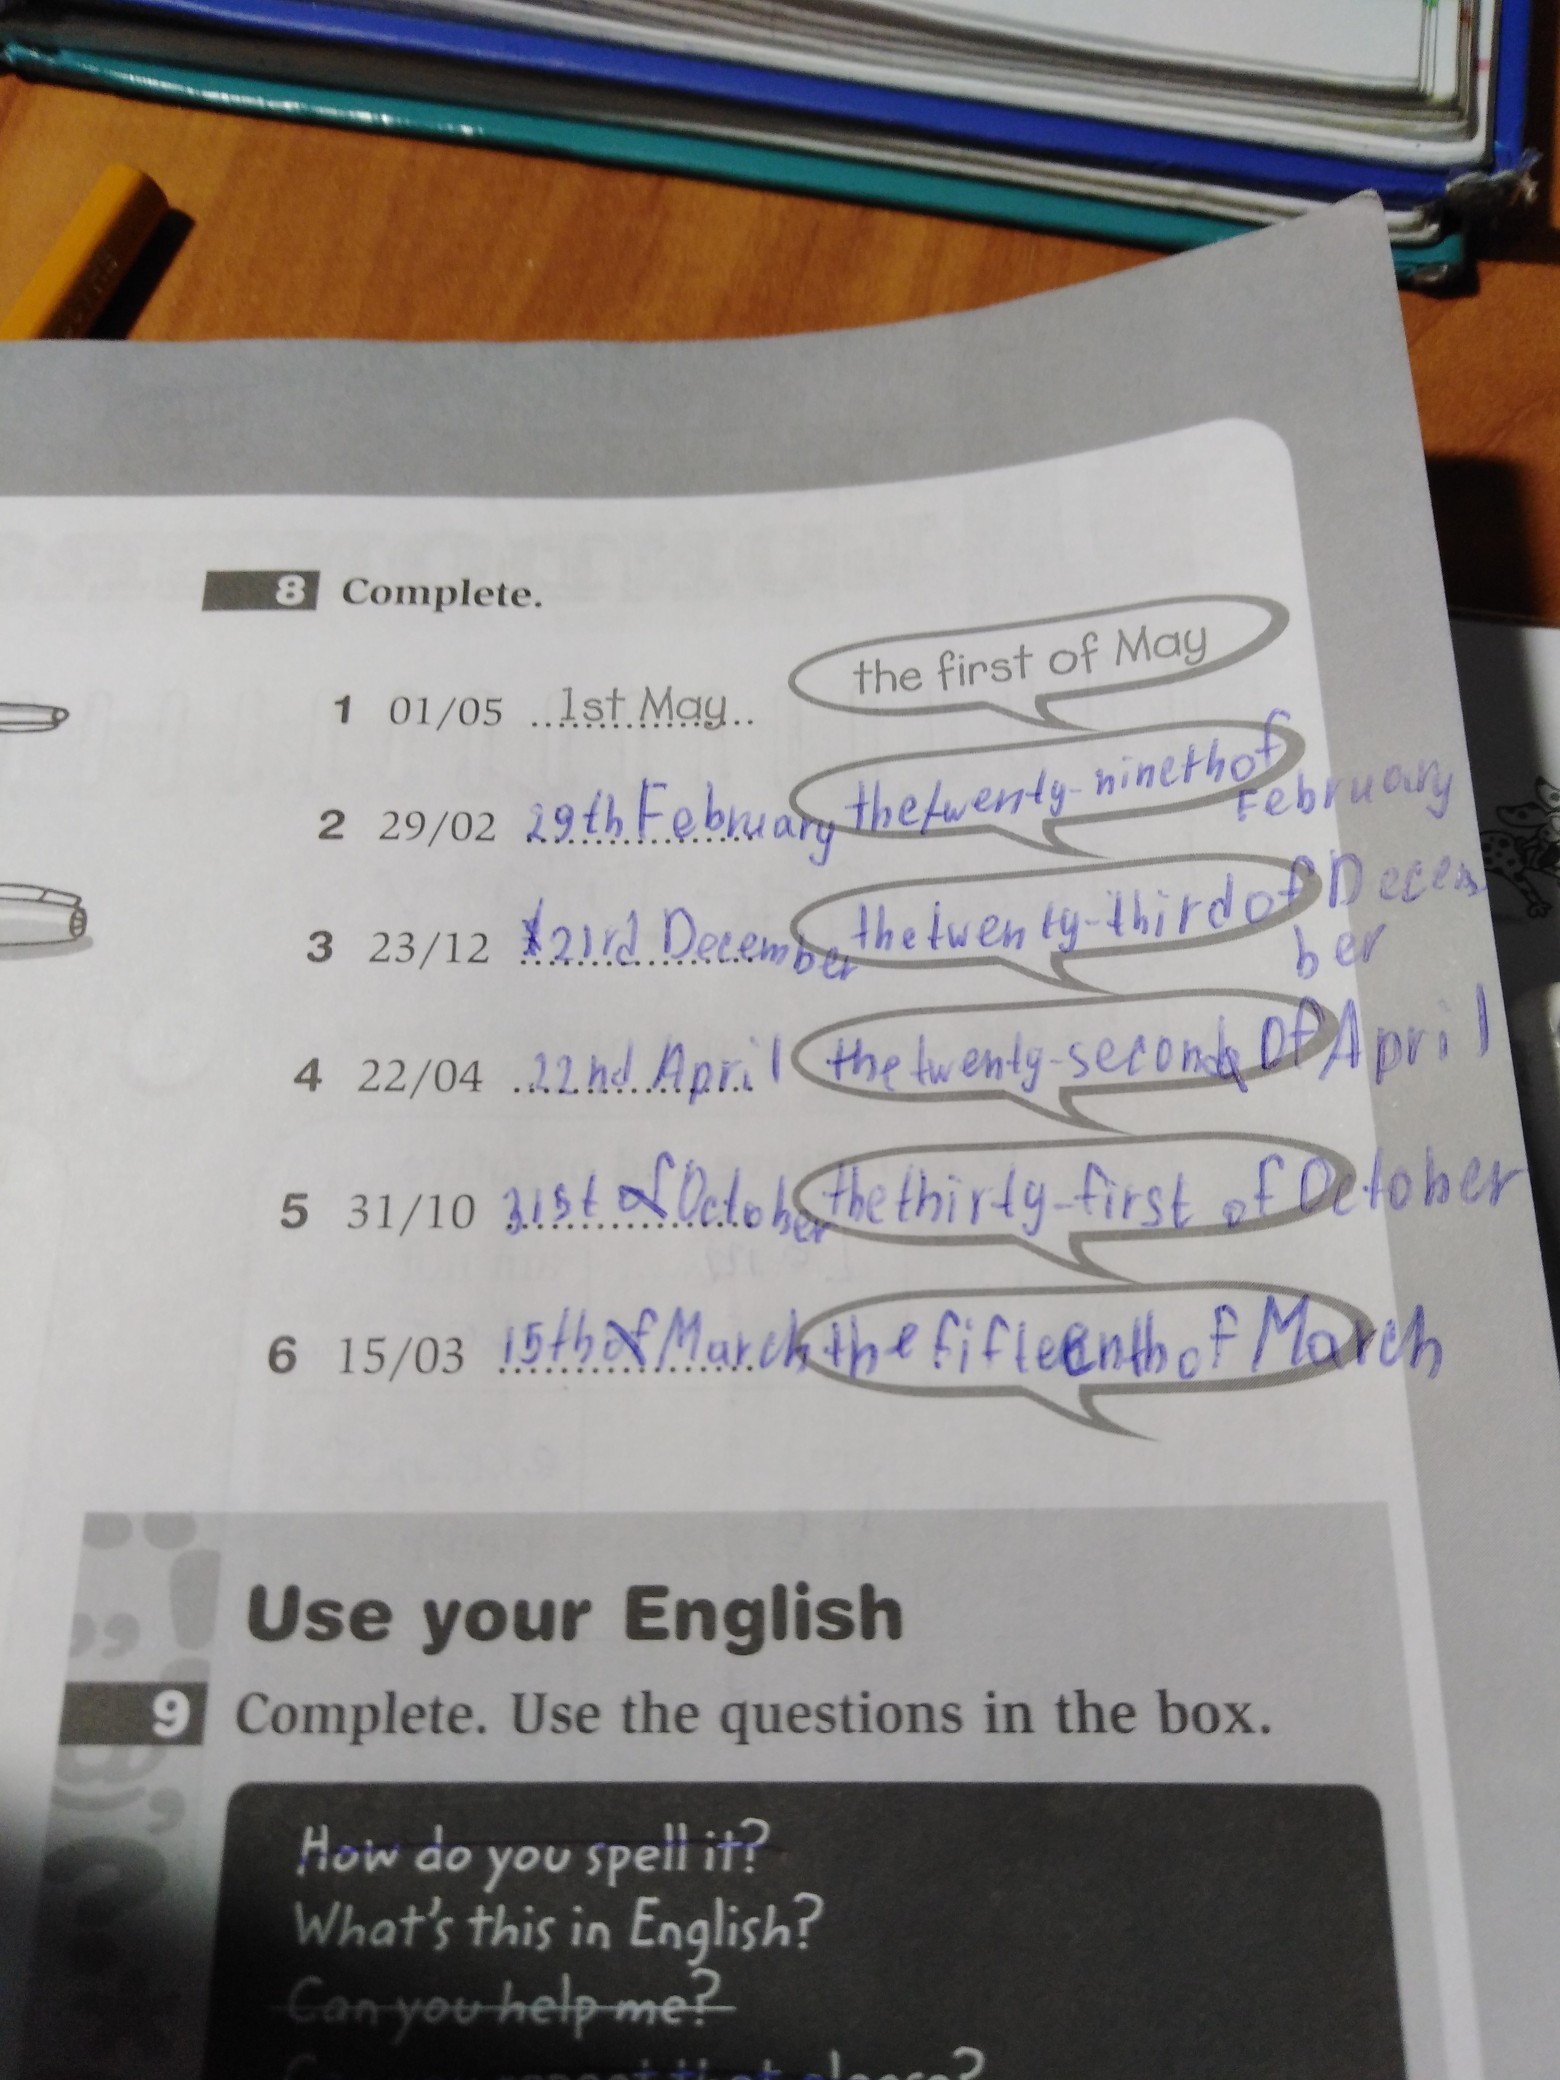 8 Complete.
the first of May
1 01/05 1st May
2 29/02 29th February the twenty-nineth of
February
3 23/12 23rd December the twenty-third of Decem
ber
4 22/04 22nd April the twenty-second of April
5 31/10 31st of October the thirty-first of October
6 15/03 15th of March the fifteenth of March
Use your English
9 Complete. Use the questions in the box.
How do you spell it?
What's this in English?
Can you help me?
repeat that please?